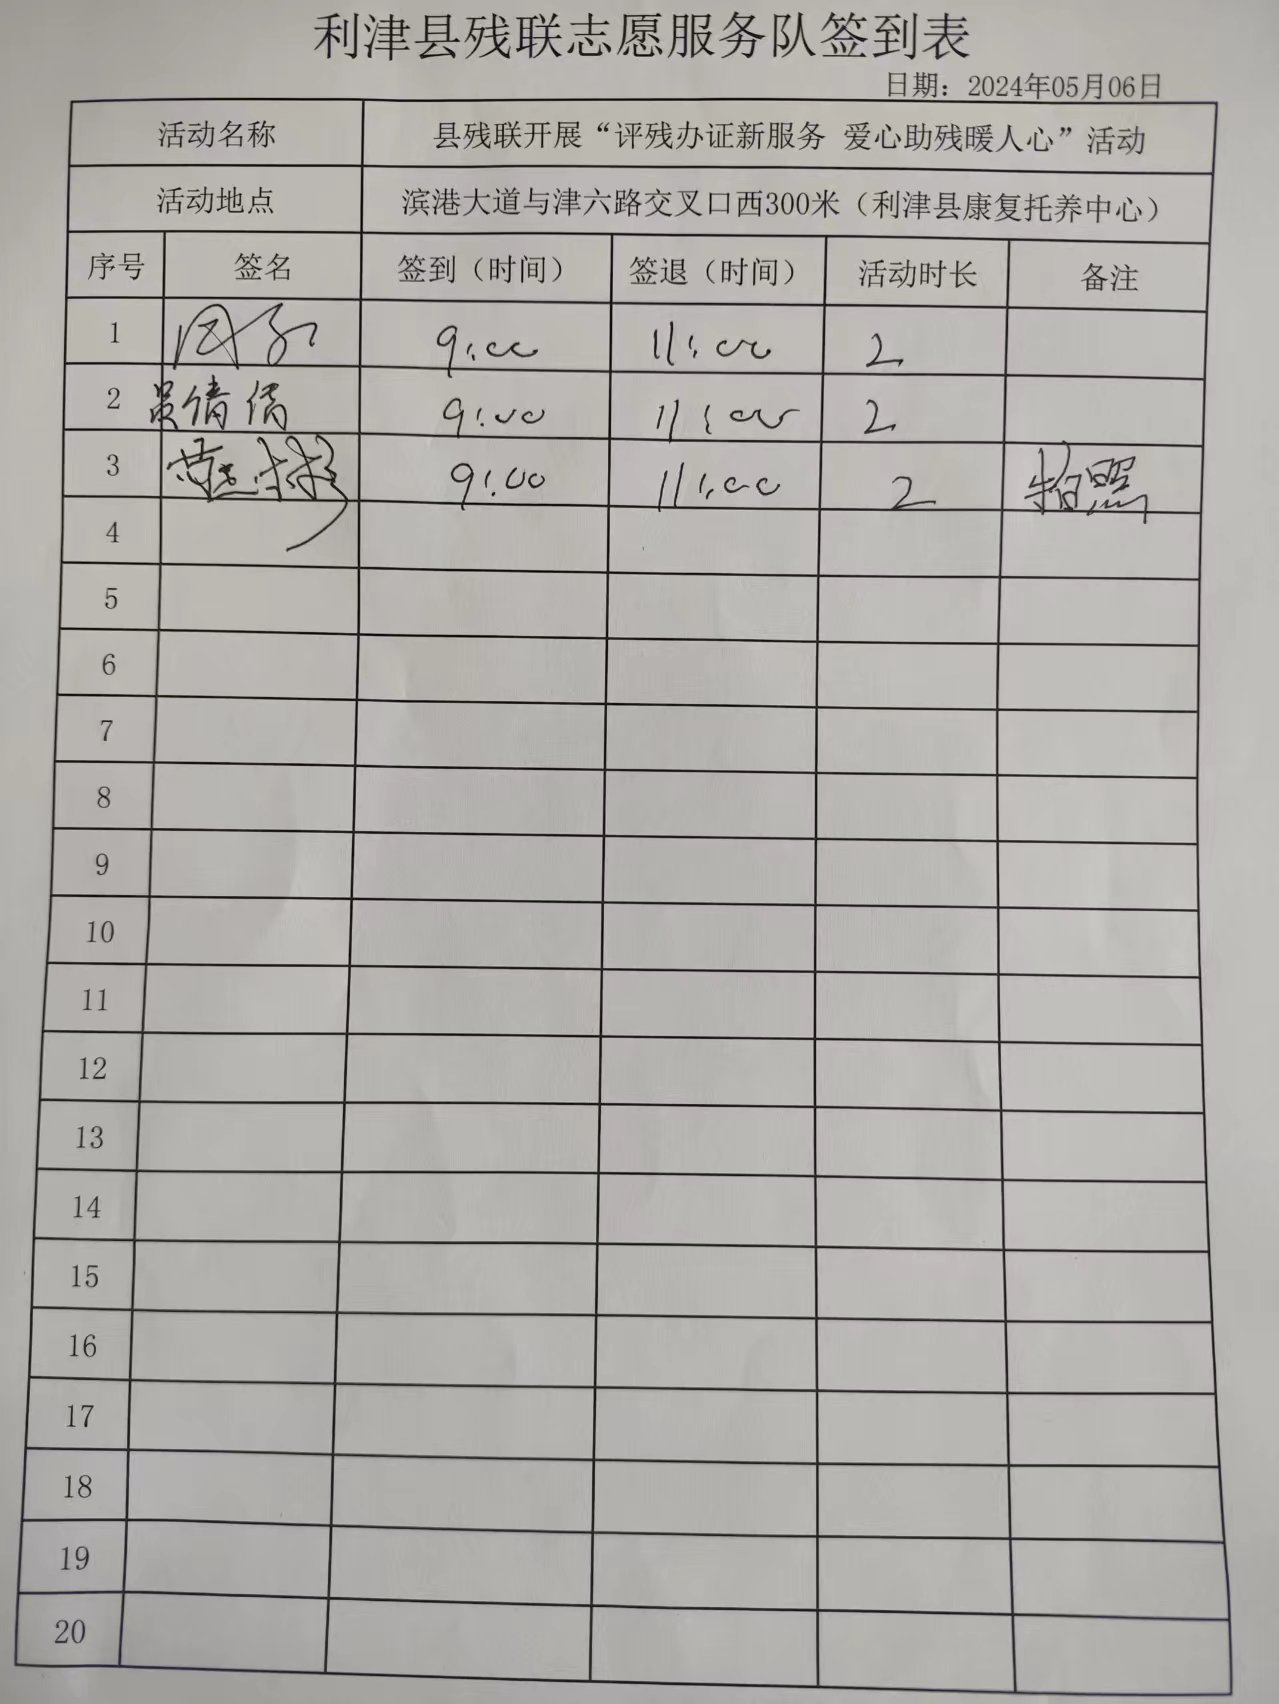 利津县残联志愿服务队签到表
日期：2024年05月06日
活动名称 县残联开展“评残办证新服务 爱心助残暖人心”活动
活动地点 滨港大道与津六路交叉口西300米（利津县康复托养中心）
序号 签名 签到（时间） 签退（时间） 活动时长 备注
1 9:00 11:00 2
2 吴倩倩 9:00 11:00 2
3 9:00 11:00 2 拍照
4
5
6
7
8
9
10
11
12
13
14
15
16
17
18
19
20